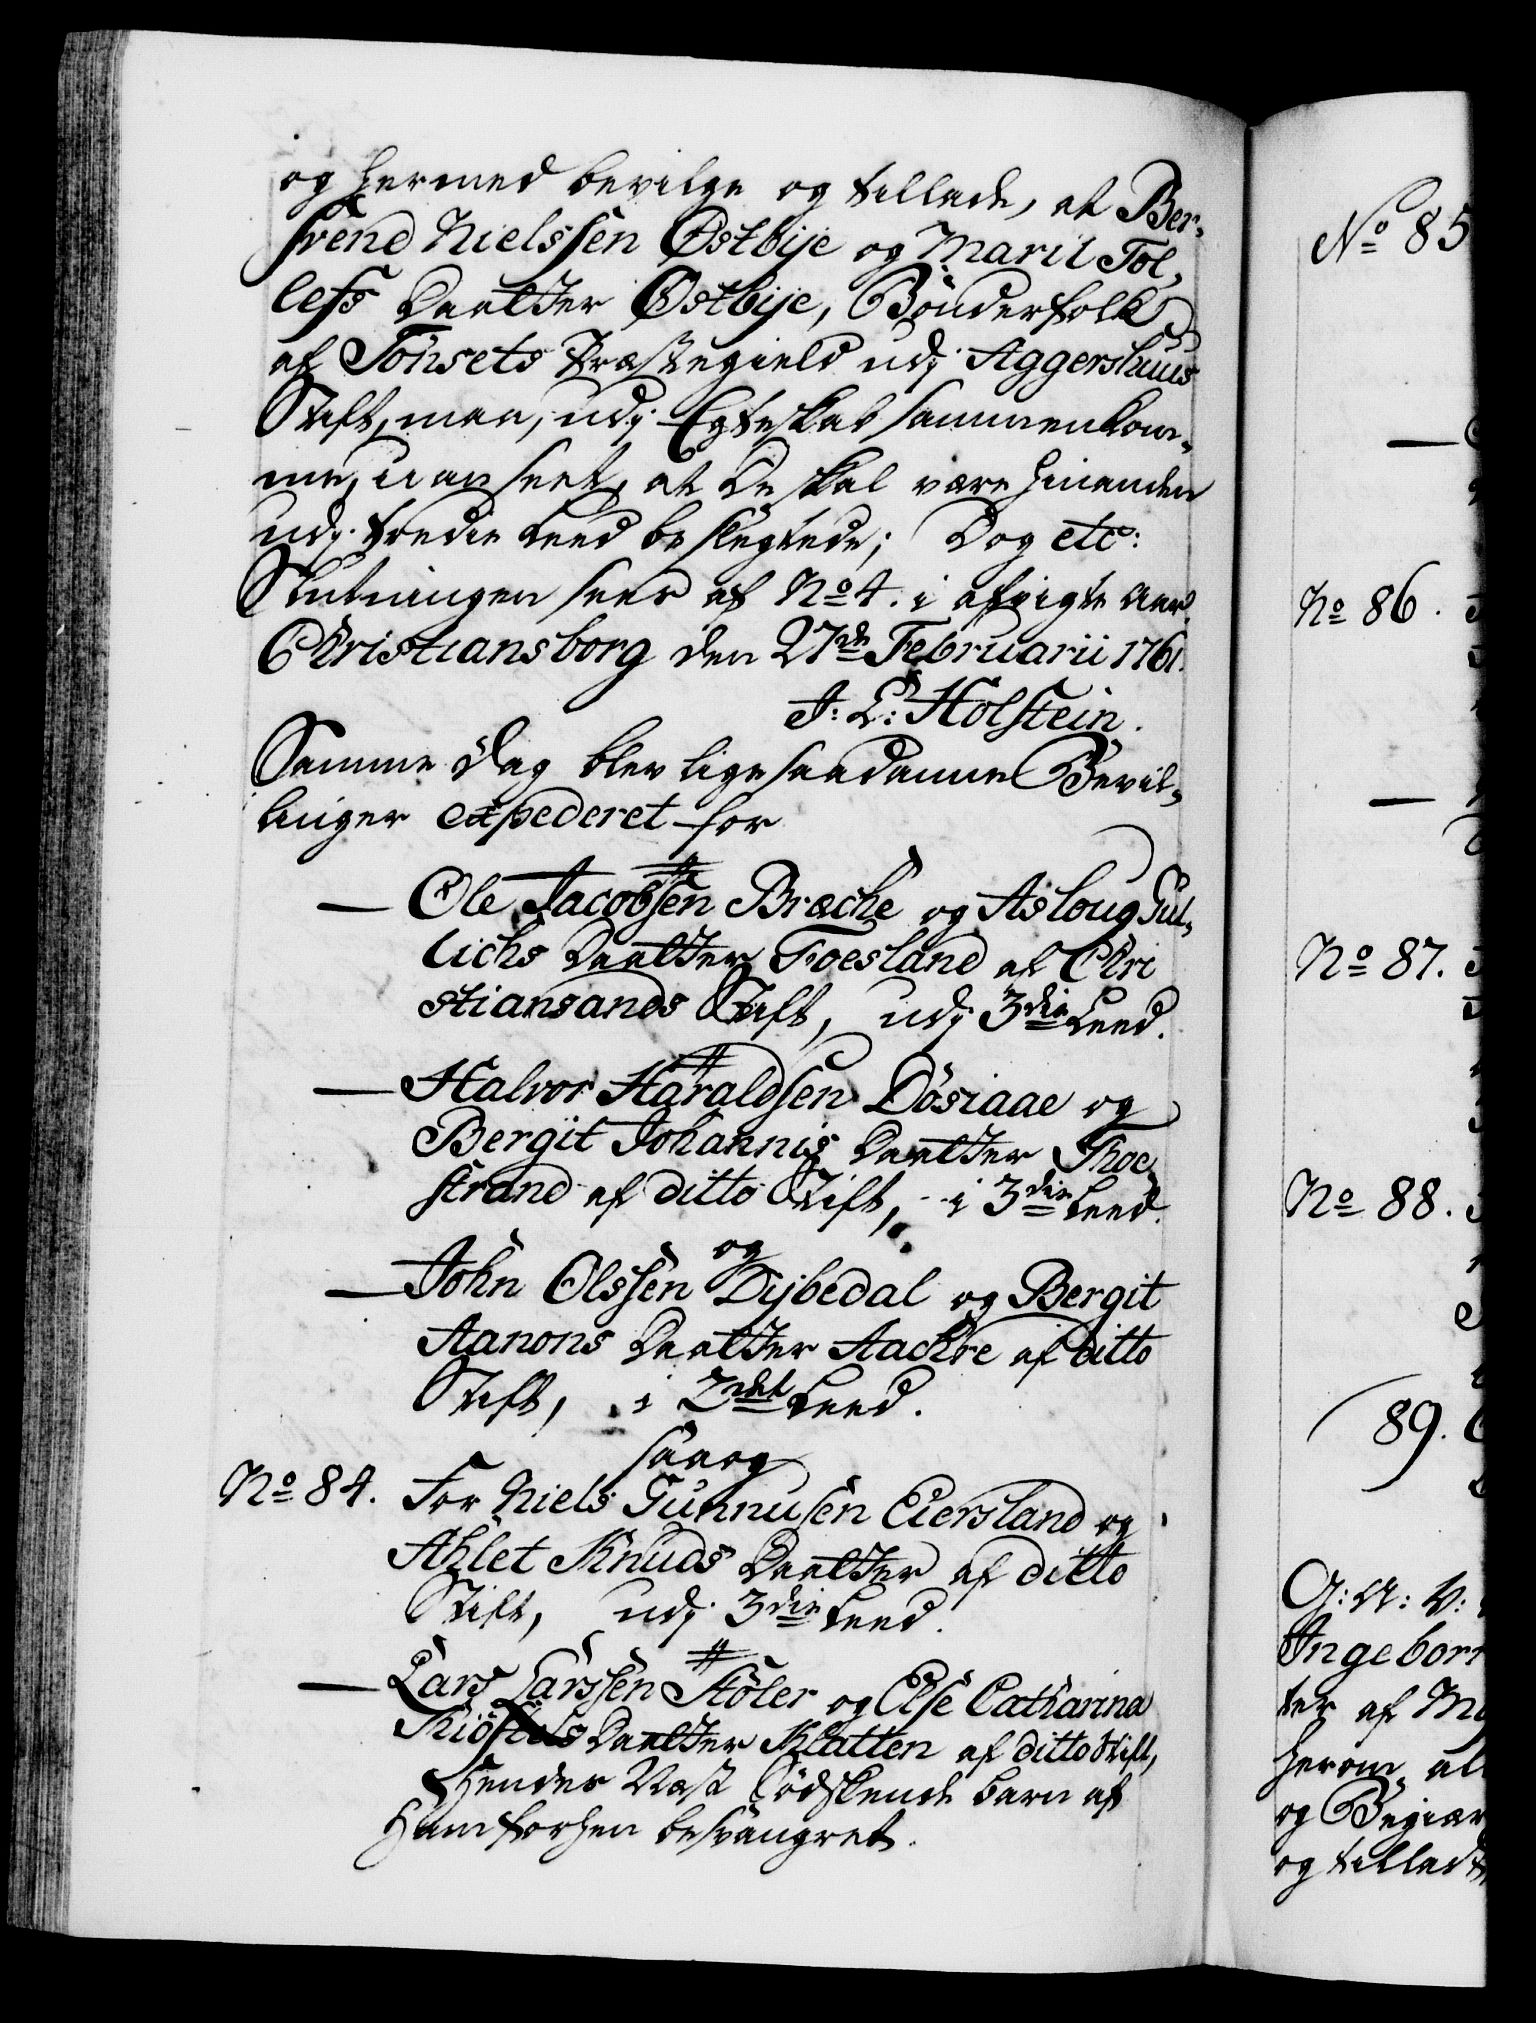 og hermed bevilge og tillade, at Ber-
svend Nielssen Østbije og Marit Tol-
lefs Daatter Østbije, Bønderfolk
af Tønsets Præstegield udj Aggershuus
Stift, maa, udj Egteskab sammenkom-
me, uanseet, at De skal være hinanden
udj tredie Leed beslægtede; Dog etc:
Slutningen seer af No 4. i afvigte Aar.
Christiansborg den 27de Februarii 1761.
J: L: Holstein.
Samme Dag blev ligesaadanne Bevil-
linger expederet for
— Ole Jacobsen Bræche og Asloug Gul-
lichs Daatter Foesland af Chri
stiansands Stift, udj 3die Leed.
— Halvor Haraldsen Døsiaae og
Bergit Johannis Daatter Thoe
strand af ditto Stift, i 3die Leed.
og
— John Olssen Dijbedal og Bergit
Aanons Daatter Aachre af ditto
Stift, i 2det Leed.
saa og
No 84. For Niels Gunnusen Eiersland og
Ahlet Knuds Daatter af ditto
Stift, udj 3die Leed.
— Lars Larssen Støler og Else Catharina
Daatter Klatten af ditto Stift,
Hendes Næst Sødskende barn af
Ham forhen besvangret.
No 85
No 86.
No 87.
No 88.
89.
G: A: V:
Ingeborr
ter af
herom, al
og Begiær
og tillade